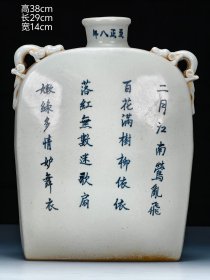 高38cm
长29cm
宽14cm
至正八年
二月江南鶯亂飛
百花滿樹柳依依
落紅無數迷歌扇
嫩綠多情妒舞衣